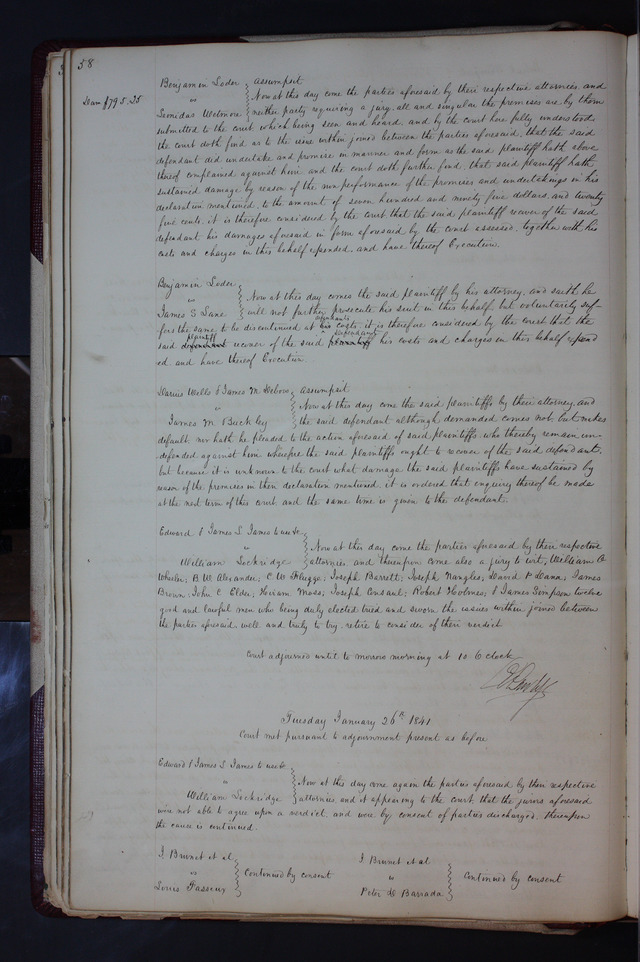 58
Benjamin Soder } Assumpsit
Dam $795.25
vs } Now at this day come the parties aforesaid by their respective attornies, and
Leonidas Wetmore } neither party requiring a jury, all and singular the premises are by them
submitted to the court which being seen and heard, and by the court here fully understood
the court doth find as to the issue within joined between the parties aforesaid, that the said
defendant did undertake and promise in manner and form as the said plaintiff hath above
thereof complained against him and the court doth further find, that said plaintiff hath
sustained damage by reason of the non performance of the promises and undertakings in his
declaration mentioned, to the amount of seven hundred and ninety five dollars, and twenty
five cents, it is therefore considered by the court that the said plaintiff recover of the said
defendant his damages aforesaid in form aforesaid by the court assessed, together with his
costs and charges in this behalf expended, and have thereof Execution.
Benjamin Soder
vs } Now at this day comes the said plaintiff by his attorney, and saith he
James S Lane } will not further prosecute his suit in this behalf, but voluntarily suf-
fers the same to be discontinued at his costs, it is therefore considered by the court that the
said plaintiff recover of the said defendant his costs and charges in this behalf expend
ed, and have thereof Execution
Darius Wells & James M. Debow } Assumpsit
vs } Now at this day come the said plaintiffs by their attorney, and
James M Buckley } the said defendant although demanded comes not, but makes
default, nor hath he pleaded to the action aforesaid of said plaintiffs, who thereby remain un-
defended against him wherefore the said plaintiffs ought to recover of the said defendant,
but because it is unknown to the court what damage the said plaintiffs have sustained by
reason of the premises in their declaration mentioned, it is ordered that enquiry thereof be made
at the next term of this court, and the same time is given to the defendant.
Edward & James S James to use &c
" } Now at this day come the parties aforesaid by their respective
William Lockridge } attornies, and thereupon come also a jury to wit, William A
Wheeler; B W Alexander; C W Flugge; Joseph Barrett; Joseph Nangles; David P Deana; James
Brown; John C Elder; Hiram Moss; Joseph Ansaul; Robert Holmes; & James Simpson twelve
good and lawful men who being duly elected tried, and sworn, the issues within joined between
the parties aforesaid, well, and truly to try, retire to consider of their verdict
Court adjourned until to morrow morning at 10 O clock
Tuesday January 26th 1841
Court met pursuant to adjournment present as before
Edward & James S James to use &c
" } Now at this day come again the parties aforesaid by their respective
William Lockridge } attornies and it appearing to the court, that the jurors aforesaid
were not able to agree upon a verdict, and were by consent of parties discharged, thereupon
the cause is continued.
J Brunet et al
vs } Continued by consent
Louis Vasseur
J Brunet et al
vs } Continued by consent
Peter D Barrada